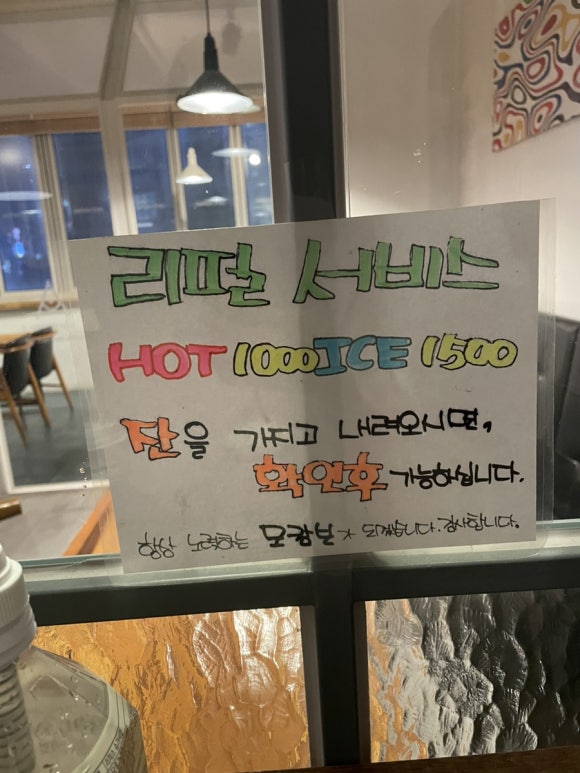 리필 서비스
HOT 1000 ICE 1500
잔을 가지고 내려오시면,
확인후 가능하십니다.
항상 노력하는 되겠습니다. 감사합니다.